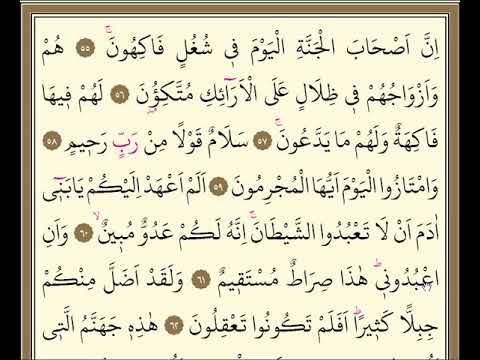 اِنَّ اَصْحَابَ الْجَنَّةِ الْيَوْمَ فٖى شُغُلٍ فَاكِهُونَۚ ﴿٥٥﴾ هُمْ
وَاَزْوَاجُهُمْ فٖى ظِلَالٍ عَلَى الْاَرَٓائِكِ مُتَّكِؤُ۫نَ ﴿٥٦﴾ لَهُمْ فٖيهَا
فَاكِهَةٌ وَلَهُمْ مَا يَدَّعُونَۚ ﴿٥٧﴾ سَلَامٌ قَوْلًا مِنْ رَبٍّ رَحٖيمٍ ﴿٥٨﴾
وَامْتَازُوا الْيَوْمَ اَيُّهَا الْمُجْرِمُونَ ﴿٥٩﴾ اَلَمْ اَعْهَدْ اِلَيْكُمْ يَا بَنٖٓى
اٰدَمَ اَنْ لَا تَعْبُدُوا الشَّيْطَانَۚ اِنَّهُ لَكُمْ عَدُوٌّ مُبٖينٌۙ ﴿٦٠﴾ وَاَنِ
اعْبُدُونٖىؕ هٰذَا صِرَاطٌ مُسْتَقٖيمٌ ﴿٦١﴾ وَلَقَدْ اَضَلَّ مِنْكُمْ
جِبِلًّا كَثٖيرًاؕ اَفَلَمْ تَكُونُوا تَعْقِلُونَ ﴿٦٢﴾ هٰذِهٖ جَهَنَّمُ الَّتٖى